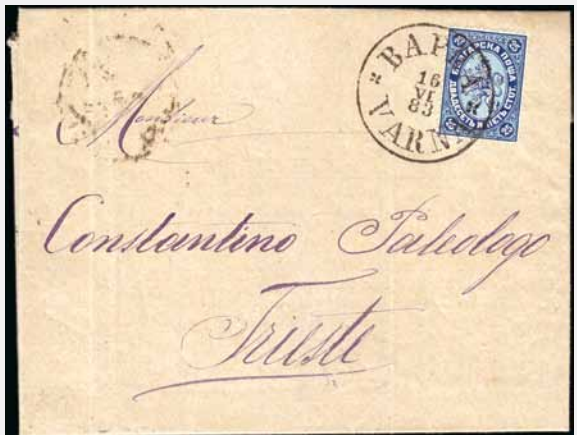 ВАР
16
VI
83
VARN
25
25
БЪЛГАРСКА ПОЩА
ДВАДЕСЕТЬ И ПЕТЬ СТОТ.
25
25
Monsieur
Constantino Paleologo
Trieste